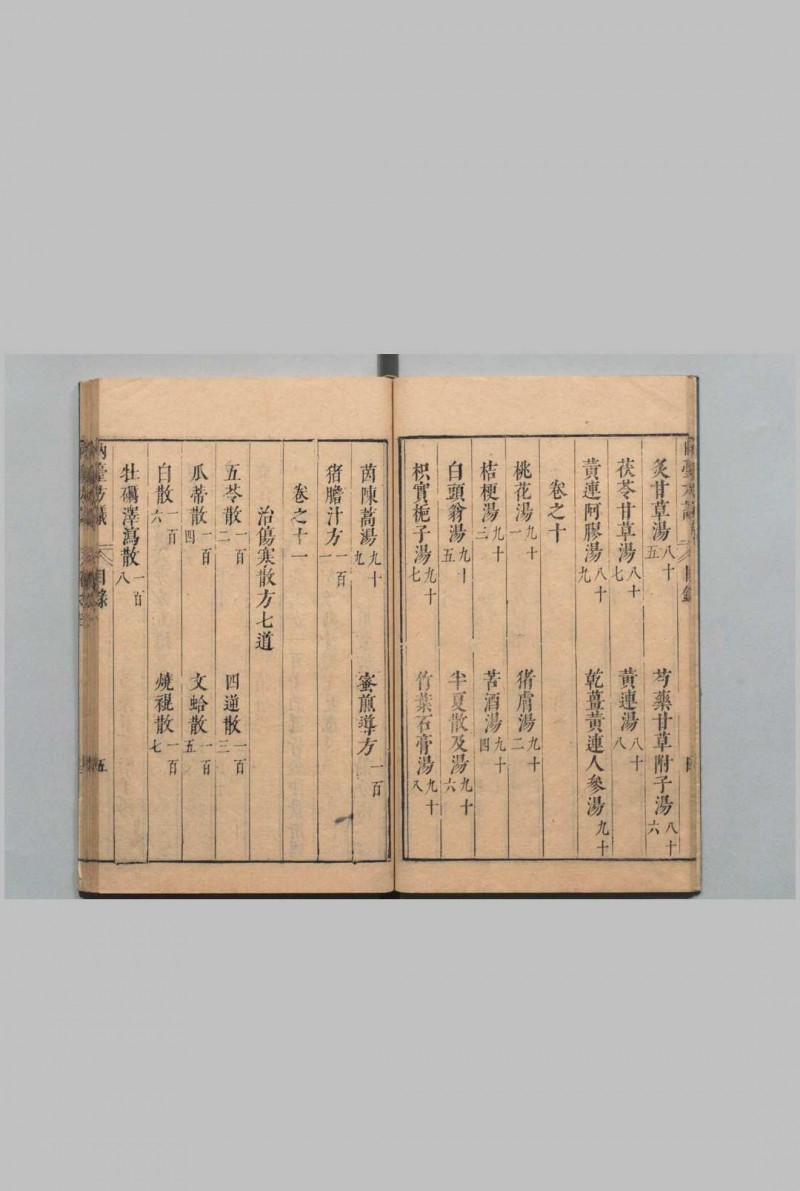 炙甘草湯八十五 芍藥甘草附子湯八十六
茯苓甘草湯八十七 黃連湯八十八
黃連阿膠湯八十九 乾薑黃連人參湯九十
卷之十
桃花湯九十一 猪膚湯九十二
桔梗湯九十三 苦酒湯九十四
白頭翁湯九十五 半夏散及湯九十六
枳實梔子湯九十七 竹葉石膏湯九十八
茵陳蒿湯九十九 蜜煎導方一百
猪膽汁方一百一
卷之十一
治傷寒散方七道
五苓散一百二 四逆散一百三
瓜蒂散一百四 文蛤散一百五
白散一百六 燒裩散一百七
牡礪澤瀉散一百八
内臺方議 目錄 五